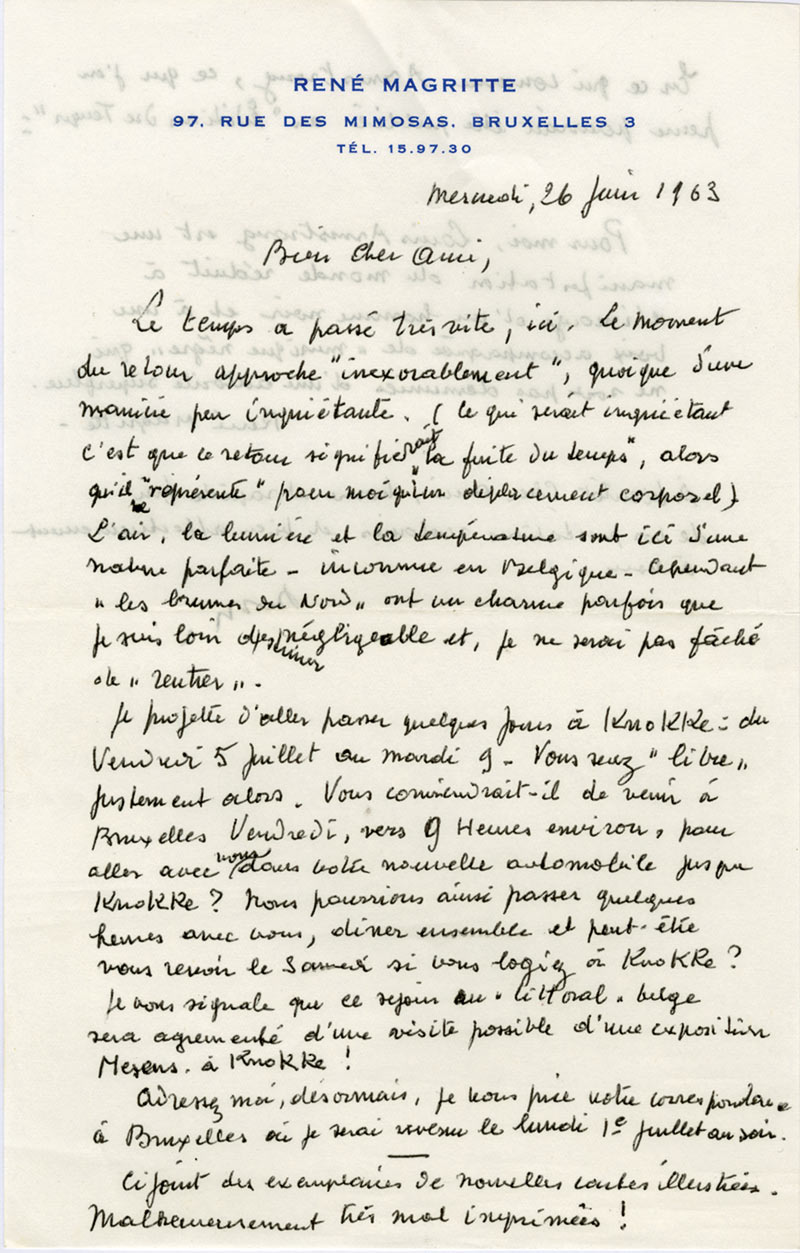 RENÉ MAGRITTE
97, RUE DES MIMOSAS. BRUXELLES 3
TÉL. 15.97.30
Mercredi, 26 Juin 1963
Bien cher Ami,
Le temps a passé très vite, ici. Le moment
du retour approche "inexorablement", quoique d'une
manière peu inquiétante. (Ce qui serait inquiétant
c'est que ce retour signifierait "la fuite du temps", alors
qu'il ne "représente" pour moi qu'un déplacement corporel)
L'air, la lumière et la température sont ici d'une
nature parfaite - inconnue en Belgique - Cependant
"les brumes du Nord" ont un charme parfois que
je suis loin d'estimer négligeable et, je ne serai pas fâché
de "rentrer".
Je projette d'aller passer quelques jours à KnoKKe : du
Vendredi 5 Juillet au mardi 9 - Vous serez "libre"
justement alors. Vous conviendrait-il de venir à
Bruxelles Vendredi, vers 9 Heures environ, pour
aller avec nous dans votre nouvelle automobile jusque
KnoKKe ? Nous pourrions ainsi passer quelques
heures avec vous, dîner ensemble et peut-être
vous revoir le Samedi si vous logiez à KnoKKe ?
Je vous signale que ce séjour au "littoral" belge
sera agrémenté d'une visite possible d'une exposition
Mesens. à KnoKKe !
Adressez moi, désormais, je vous prie votre correspondance
à Bruxelles où je serai revenu le lundi 1e Juillet au soir.
Ci joint des exemplaires de nouvelles cartes illustrées.
Malheureusement très mal imprimées !